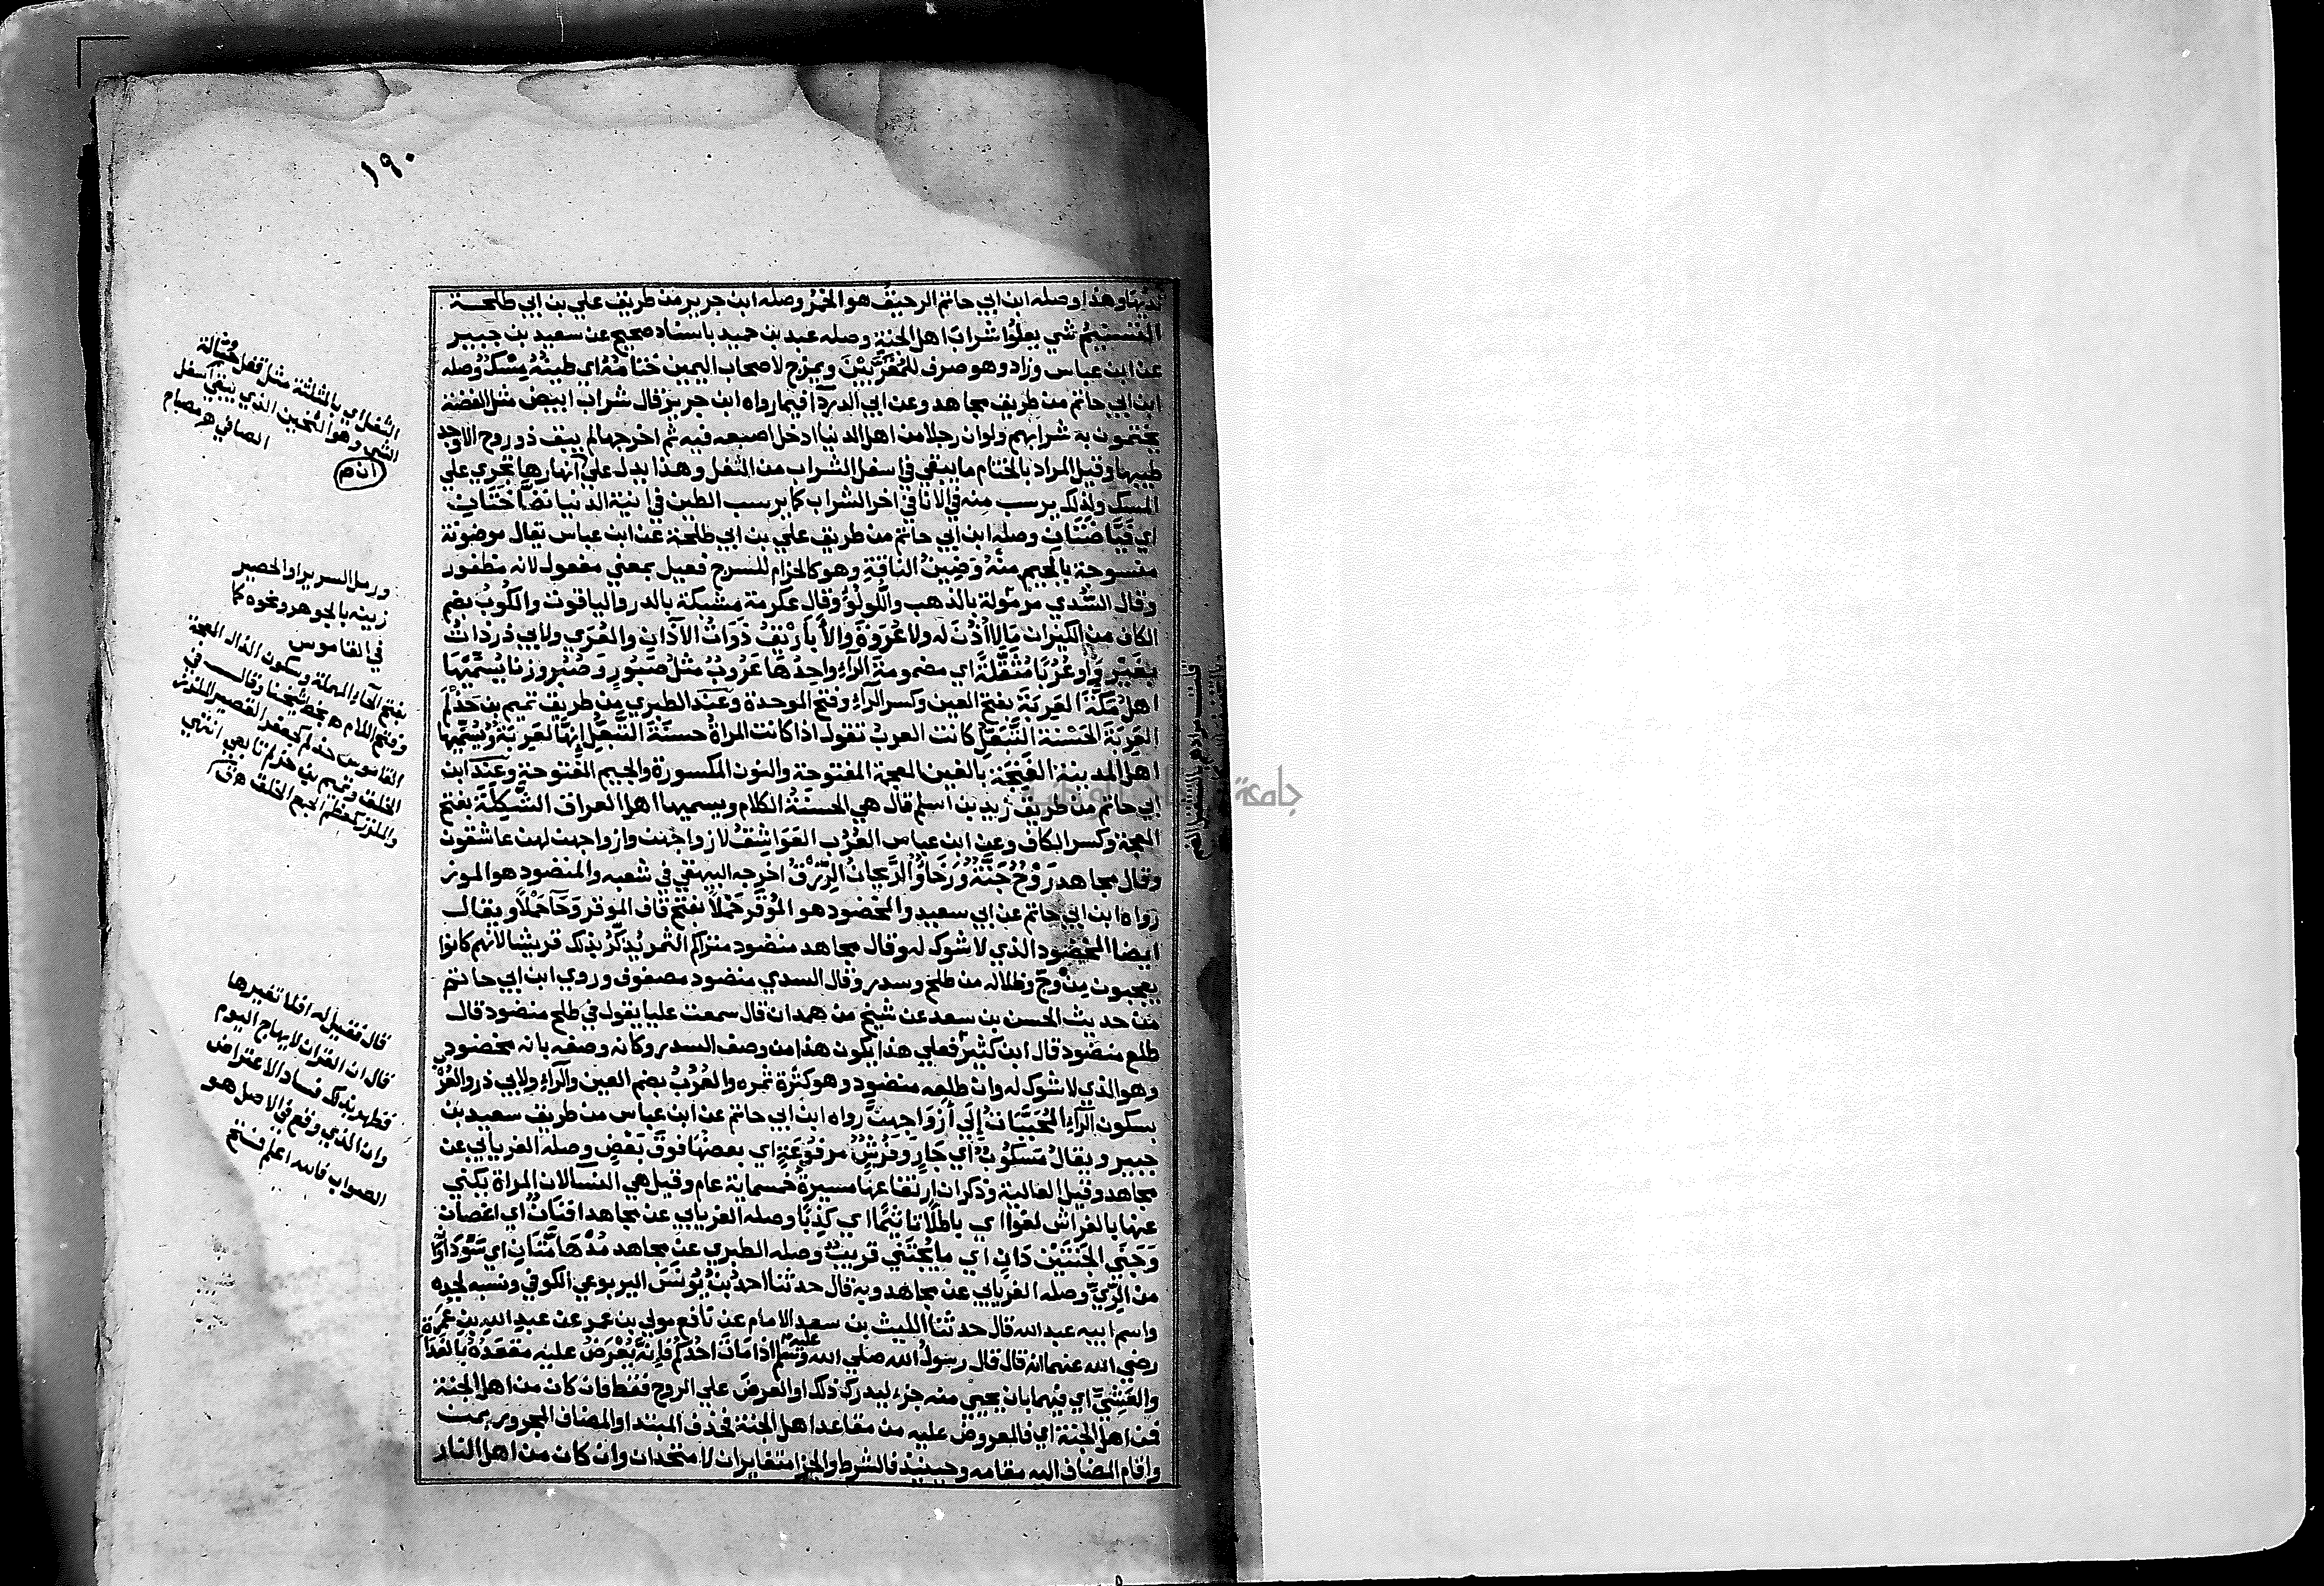 ١٩٠
وهذا وصله ابن ابي حاتم الرحيق هو الخمر وصله ابن جرير من طريق علي بن ابي طلحة
التسنيم شي يعلوا شراب اهل الجنة وصله عبد بن حميد باسناد صحيح عن سعيد بن جبير
عن ابن عباس وزاد وهو صرف للمقربين ويمزج لاصحاب اليمين ختامه اي طينه مسك وصله
ابن ابي حاتم من طريق مجاهد وعن ابي الدرداء فيما رواه ابن جرير قال شراب ابيض مثل الفضة
يختمون به شرابهم ولو ان رجلا من اهل الدنيا ادخل اصبعه فيه ثم اخرجها لم يبق ذو روح الا وجد
طيبها وقيل المراد بالختام ما يبقي في اسفل الشراب من الثفل وهذا يدل علي ان انهارها تجري علي
المسك ولذلك يرسب منه في الانا في اخر الشراب كما يرسب الطين في انية الدنيا نضاختان
اي فياضتان وصله ابن ابي حاتم من طريق علي بن ابي طلحة عن ابن عباس يقال موضونة
منسوجة بالجيم منه وضين الناقة وهو كالحزام للسرج فعيل بمعني مفعول لانه مظفور
وقال السدي مرمولة بالذهب واللولؤ وقال عكرمة مشبكة بالدر والياقوت والكوب بضم
الكاف من الكيزان ما لا اذن له ولا عروة والاباريق ذوات الاذان والعري ولابي ذر ذات
بغير واو عربا مثقلة اي مضمومة الراء واحدها عروب مثل صبور وصبر وزنا يسميها
اهل مكة العربة بفتح العين وكسر الراء وفتح الموحدة وعند الطبري من طريق تميم بن حذلم
العربة الحسنة التبعل كانت العرب تقول اذا كانت المراة حسنة التبعل انها لعربة ويسميها
اهل المدينة الغنجة بالغين المعجمة المفتوحة والنون المكسورة والجيم المفتوحة وعند ابن
ابي حاتم من طريق زيد بن اسلم قال هي الحسنة الكلام ويسميها اهل العراق الشكلة بفتح
المعجمة وكسر الكاف وعن ابن عباس العرب العواشق لازواجهن وازواجهن لهن عاشقون
وقال مجاهد روح جنة ورخاء والريحان الرزق اخرجه البيهقي في شعبه والمنضود هو الموز
رواه ابن ابي حاتم عن ابي سعيد والمخضود هو الموقر حملا بفتح قاف الموقر وحا حملا ويقال
ايضا المخضود الذي لا شوك له وقال مجاهد منضود متراكم الثمر يذكر بذلك قريشا لانهم كانوا
يعجبون من وج وظلاله من طلح وسدر وقال السدي منضود مصفوف وروي ابن ابي حاتم
من حديث الحسن بن سعد عن شيخ من همدان قال سمعت عليا يقول في طلح منضود قال
طلع منضود قال ابن كثير فعلي هذا يكون هذا من وصف السدر وكانه وصفه بانه مخضود
وهو الذي لا شوك له وان طلعه منضود وهو كثرة ثمره والعرب بضم العين والراء ولابي ذر والعرب
بسكون الراء المحببات الي ازواجهن رواه ابن ابي حاتم عن ابن عباس من طريق سعيد بن
جبير ويقال مسكوب اي جار وفرش مرفوعة اي بعضها فوق بعض وصله الفريابي عن
مجاهد وقيل العالية وذكر ان ارتفاعها مسيرة خمسماية عام وقيل هي النسا لان المراة يكني
عنها بالفراش لغوا اي باطلا تاثيما اي كذبا وصله الفريابي عن مجاهد افنان اي اغصان
وجني الجنتين دان اي ما يجتني قريب وصله الطبري عن مجاهد مدهامتان اي سوداوان
من الري وصله الفريابي عن مجاهد وبه قال حدثنا احمد بن يونس اليربوعي الكوفي ونسبه لجده
واسم ابيه عبد الله قال حدثنا الليث بن سعد الامام عن نافع مولي بن عمر عن عبد الله بن عمر
رضي الله عنهما انه قال قال رسول الله صلي الله عليه وسلم اذا مات احدكم فانه يعرض عليه مقعده بالغداة
والعشي اي فيهما بان يحيي منه جزء ليدرك ذلك او العرض علي الروح فقط فان كان من اهل الجنة
فمن اهل الجنة اي فالمعروض عليه من مقاعد اهل الجنة فحذف المبتدا والمضاف المجرور بمن
واقام المضاف اليه مقامه وحينيذ فالشرط والجزا متغايران لا متحدان وان كان من اهل النار
الثفل اي بالمثلثة مثل قفل حثالة
الشي وهو الثخين الذي يبقي اسفل
الصافي هـ مصباح
ورمل السرير او الحصير
زينه بالجوهر ونحوه كما
في القاموس
بفتح الحاء المهملة وسكون الذال المعجمة
وفتح اللام هـ بخط شيخنا وقال في
القاموس حذلم كجعفر القصير الملزز
الخلق وتميم بن حذلم تابعي انتهي
والملزز كمعظم المجتمع الخلق هـ ق
قال فقيل له افلا تغيرها
قال ان القران لا يهاج اليوم
فظهر بذلك فساد الاعتراض
وان الذي وقع في الاصل هو
الصواب فالله اعلم فتح